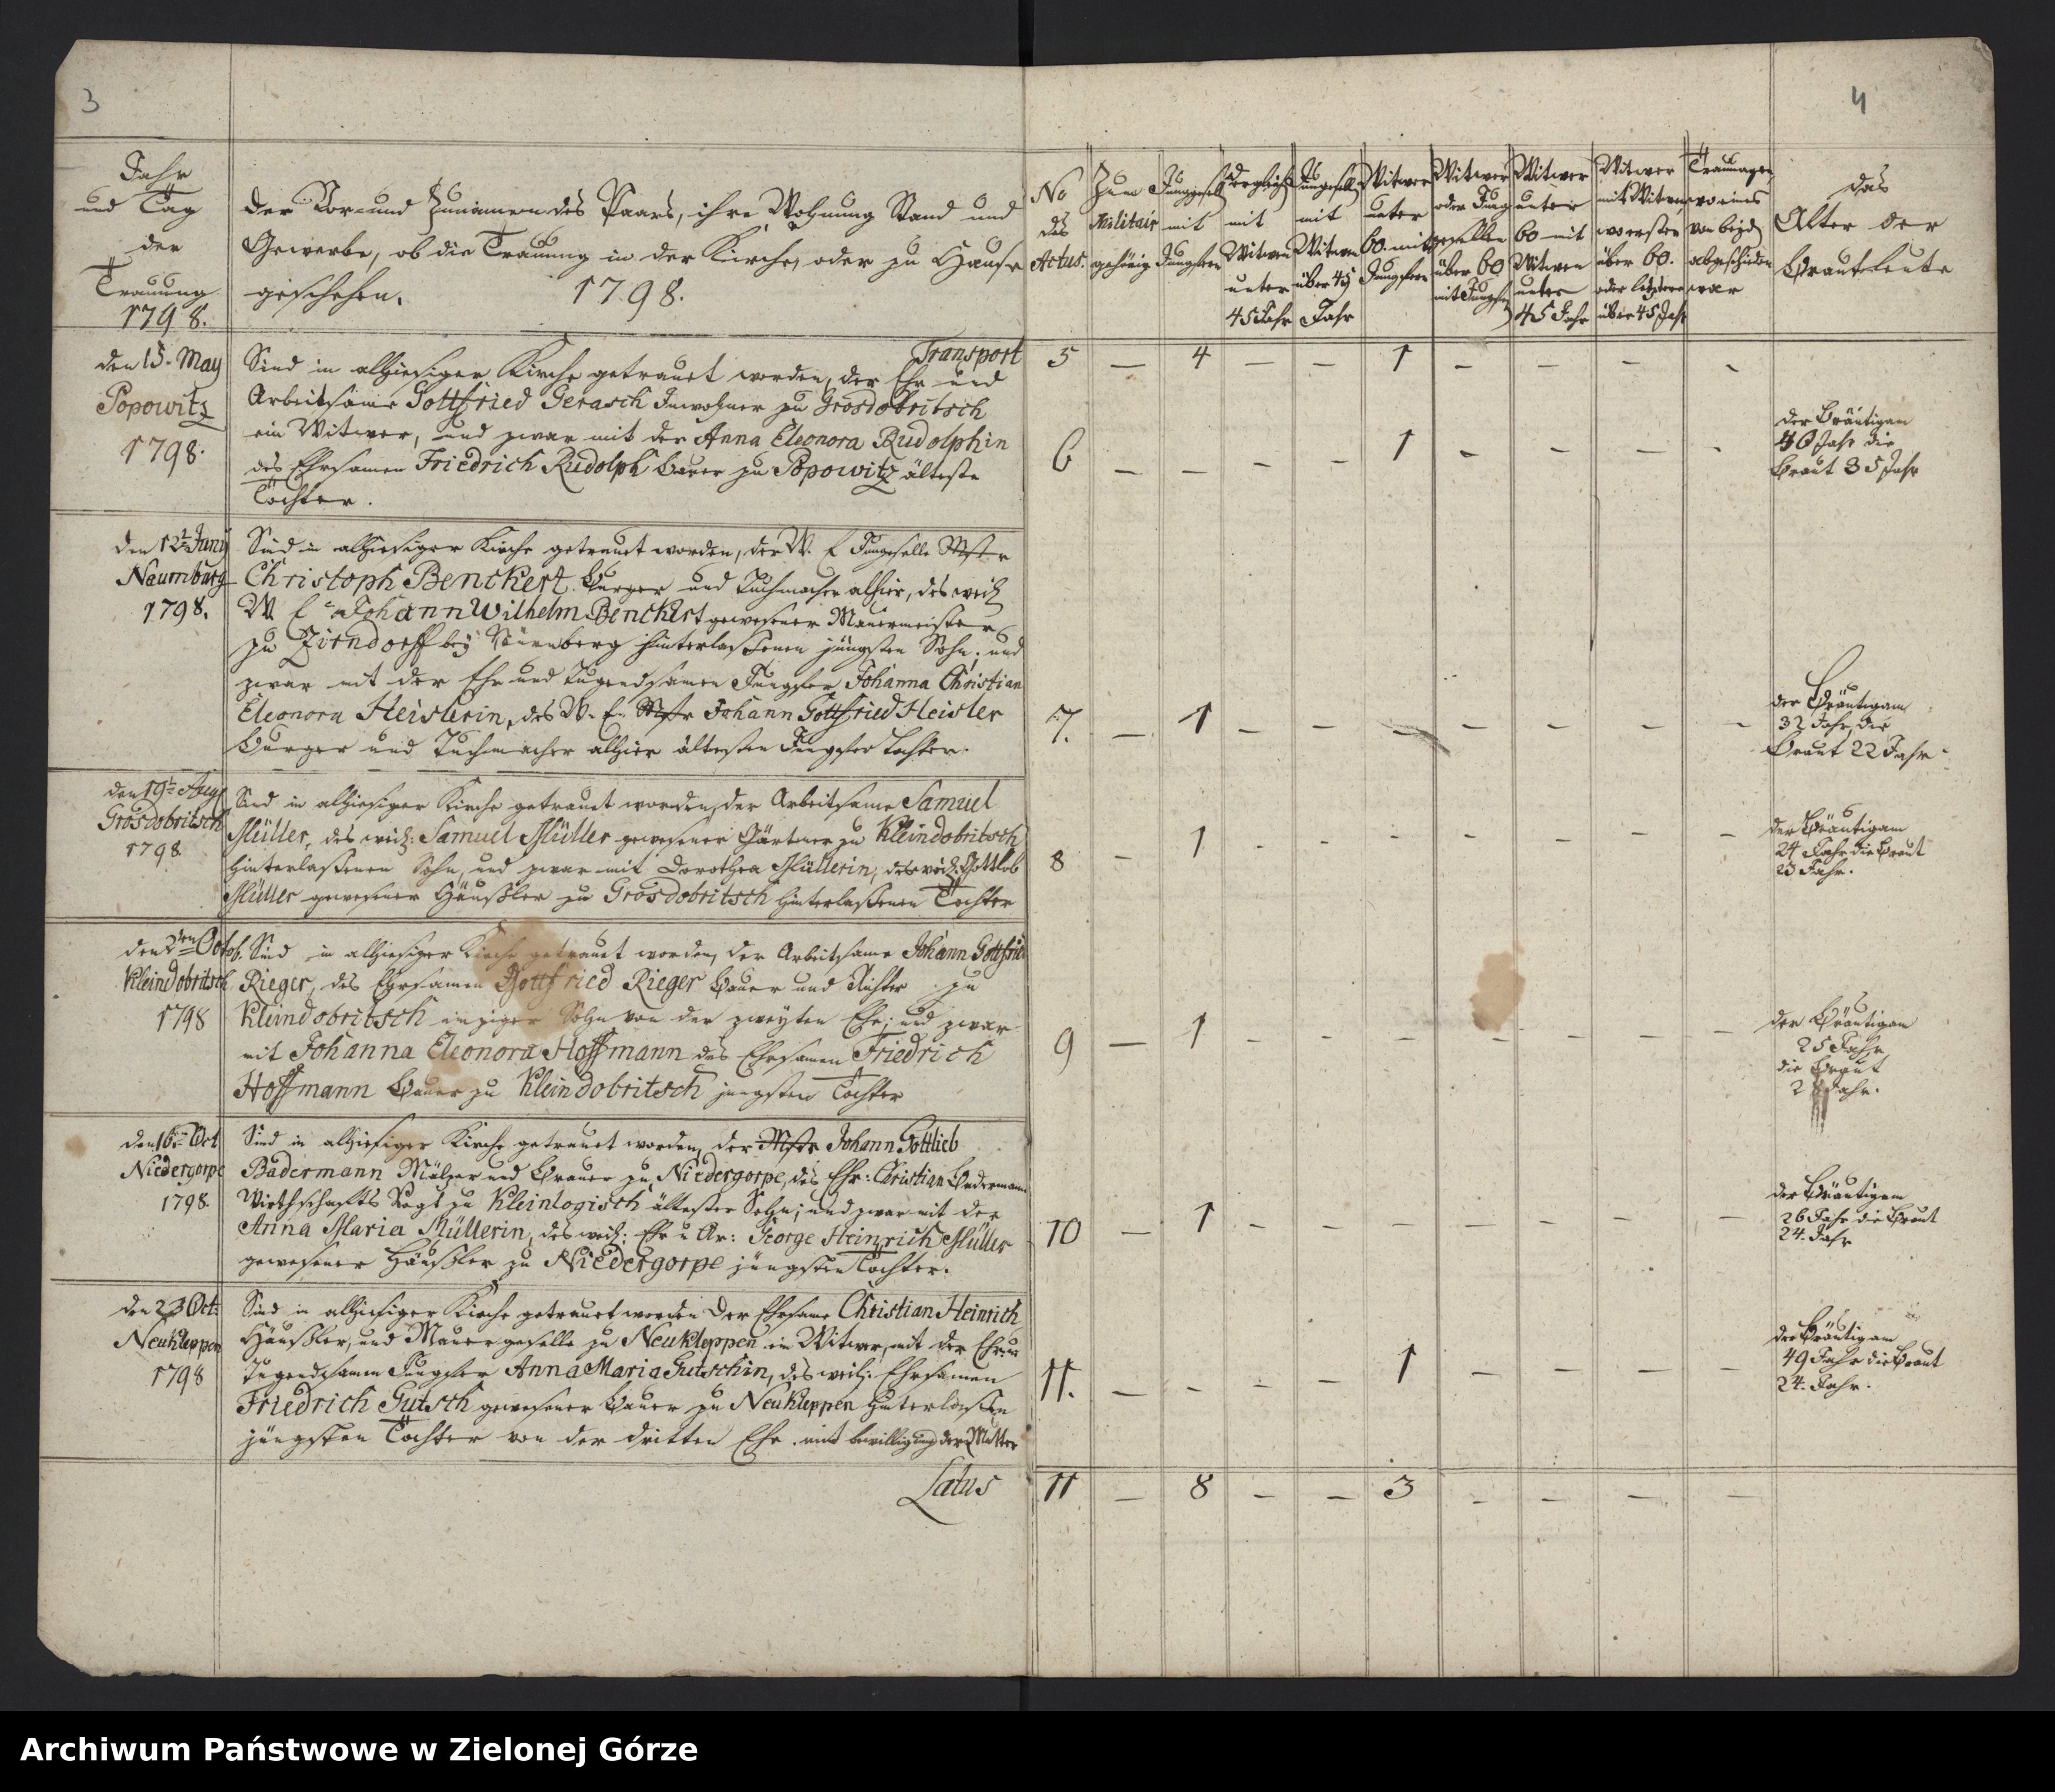 3
4
Jahr
und Tag
der
Trauung
1798.
Der Vor- und Zunamen des Paars, ihre Wohnung Stand und
Gewerbe, ob die Trauung in der Kirche, oder zu Hause
geschehen. 1798.
No
des
Actus.
Zum
Militair
gehörig
Junggesell
mit
Jungfern
dergleich
mit
Witwen
unter
45 Jahr
Jungesell
mit
Witwen
über 45
Jahr
Witwer
unter
60. mit
Jungfern
Witwer
oder Jung
gesellen
über 60
mit Jungfer
Witwer
unter
60 mit
Witwen
unter
45 Jahr
Witwer
mit Witwen
wo erster
über 60.
oder letztere
über 45 Jahr
Trauungen
wo eines
von beyd
abgeschieden
war
das
Alter der
Brautleute
Transport 5 — 4 — — 1 — — — -
den 15. May
Popowitz
1798.
Sind in alhiesiger Kirche getrauet worden, der Ehr und
Arbeitsame Gottfried Gerasch Inwohner zu Grosdobritsch
ein Witwer, und zwar mit der Anna Eleonora Rudolphin
des Ehrsamen Friedrich Rudolph Bauer zu Popowitz älteste
Tochter.
6 — — — — 1 - — — -
der Bräutigam
40 Jahr die
Braut 35 Jahr
den 12t Juny
Naumburg
1798.
Sind in alhiesiger Kirche getrauet worden, der W. E Jungeselle Mstr
Christoph Benckert Burger und Tuchmacher alhier, des weil
W. E Johann Wilhelm Benckert gewesener Mauermeister
zu Zirndorff bey Nürnberg hinterlaßenen jüngsten Sohn; und
zwar mit der Ehr und Tugendsamen Jungfer Johanna Christian
Eleonora Heislerin, des W. E. Mstr Johann Gottfried Heisler
Burger und Tuchmacher alhier ältesten Jungfer Tochter.
7. — 1 — — — — — — —
der Bräutigam
32 Jahr, die
Braut 22 Jahr
den 19t Aug
Grosdobritsch
1798.
Sind in alhiesiger Kirche getrauet worden, der Arbeitsame Samuel
Müller, des weil: Samuel Müller gewesener Gärtner zu Kleindobritsch
hinterlaßenen Sohn, und zwar mit Dorothea Müllerin, des weil: Gottlob
Müller gewesener Häußler zu Grosdobritsch hinterlaßenen Tochter
8 — 1 - - - - — — —
der Bräutigam
24 Jahr die Braut
23 Jahr.
den 2ten Octob.
Kleindobritsch
1798
Sind in alhiesiger Kirche getrauet worden, der Arbeitsame Johann Gottfried
Rieger, des Ehrsamen Gottfried Rieger Bauer und Richter zu
Kleindobritsch einziger Sohn von der zweyten Ehe; und zwar
mit Johanna Eleonora Hoffmann des Ehrsamen Friedrich
Hoffmann Bauer zu Kleindobritsch jüngsten Tochter
9 — 1 — — — — — — —
der Bräutigam
25 Jahr
die Braut
Jahr.
den 16 Oct
Niedergorpe
1798.
Sind in alhiesiger Kirche getrauet worden, der Mstr Johann Gottlieb
Badermann Mälzer und Brauer zu Niedergorpe, des Ehr: Christian Badermann
Wirthschafts Vogt zu Kleinlogisch ältester Sohn; und zwar mit der
Anna Maria Müllerin, des weil: Ehr u Ar: George Heinrich Müller
gewesener Häußler zu Niedergorpe jüngsten Tochter.
10 — 1 — — — — — — —
der Bräutigam
26 Jahr die Braut
24. Jahr
den 23 Oct:
Neukleppen
1798
Sind in alhiesiger Kirche getrauet worden Der Ehrsame Christian Heinrich
Häußler, und Mauergeselle zu Neukleppen ein Witwer, mit der Ehr u
Tugendsamen Jungfer Anna Maria Gutschin, des weil: Ehrsamen
Friedrich Gutsch gewesener Bauer zu Neukleppen hinterlaßen
jüngsten Tochter von der dritten Ehe. mit bewilligung der Mutter
11. — - — — 1 — — — —
der Bräutigam
49 Jahr die Braut
24. Jahr.
Latus 11 — 8 — — 3 - — — —
Archiwum Państwowe w Zielonej Górze